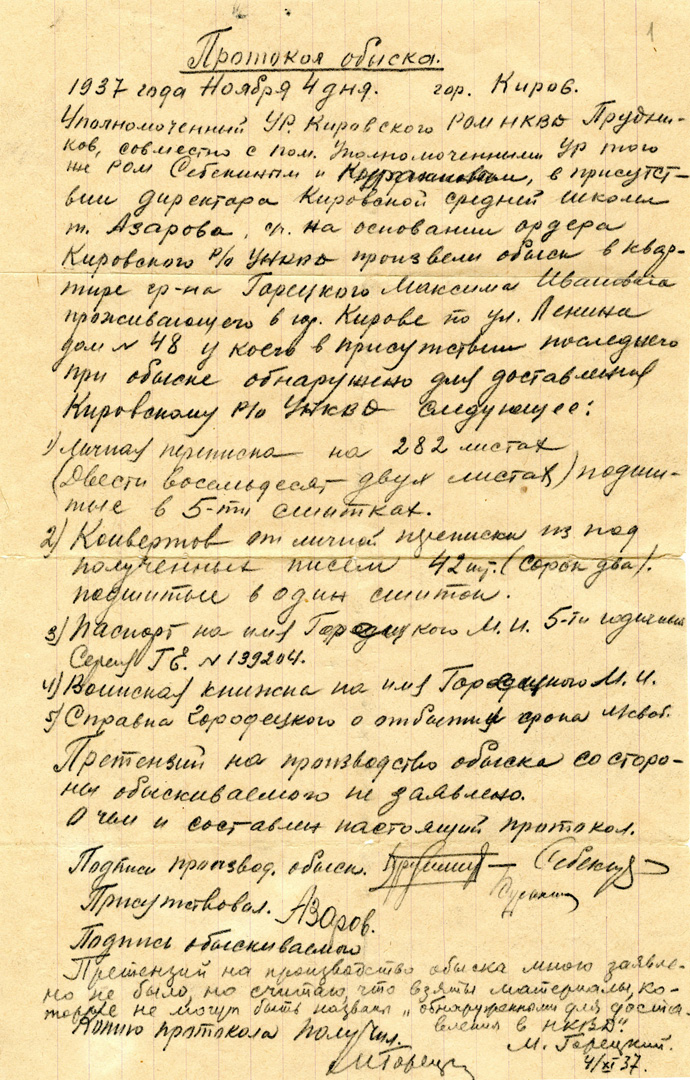 1
Протокол обыска.
1937 года Ноября 4 дня. гор. Киров.
Уполномоченный УР. Кировского РОМ НКВД Прудни-
ков, совместно с пом. Уполномоченными Ур того
же РОМ Себекиным и, в присутст-
вии директора Кировской средней школы
т. Азарова, на основании ордера
Кировского Р/о УНКВД произвели обыск в квар-
тире гр-на Горецкого Максима Ивановича
проживающего в гор. Кирове по ул. Ленина
дом № 48 у коего в присутствии последнего
при обыске обнаружено для доставления
Кировскому Р/о УНКВД следующее:
1) Личная переписка на 282 листах
(Двести восемьдесят двух листах) подши-
тые в 5-ти сшитках.
2) Конвертов от личной переписки из под
полученных писем 42 шт. (Сорок два).
подшитые в один сшиток.
3) Паспорт на имя кого М. И. 5-ти годичный
Серия ГЕ. № 139204.
4) Воинская книжка на имя М. И.
5) Справка Городецкого о отбытии срока
Претензий на производство обыска со сторо-
ны обыскиваемого не заявлено.
О чем и составлен настоящий протокол.
Подписи производ. обыск.
Присутствовал. Азаров.
Подпись обыскиваемого
Претензий на производство обыска мною заявле-
но не было, но считаю, что взяты материалы, ко-
торые не могут быть названы "обнаруженными для доста-
вления в НКВД".
Копию протокола получил. М. Горецкий.
МГорец
4/XI 37.